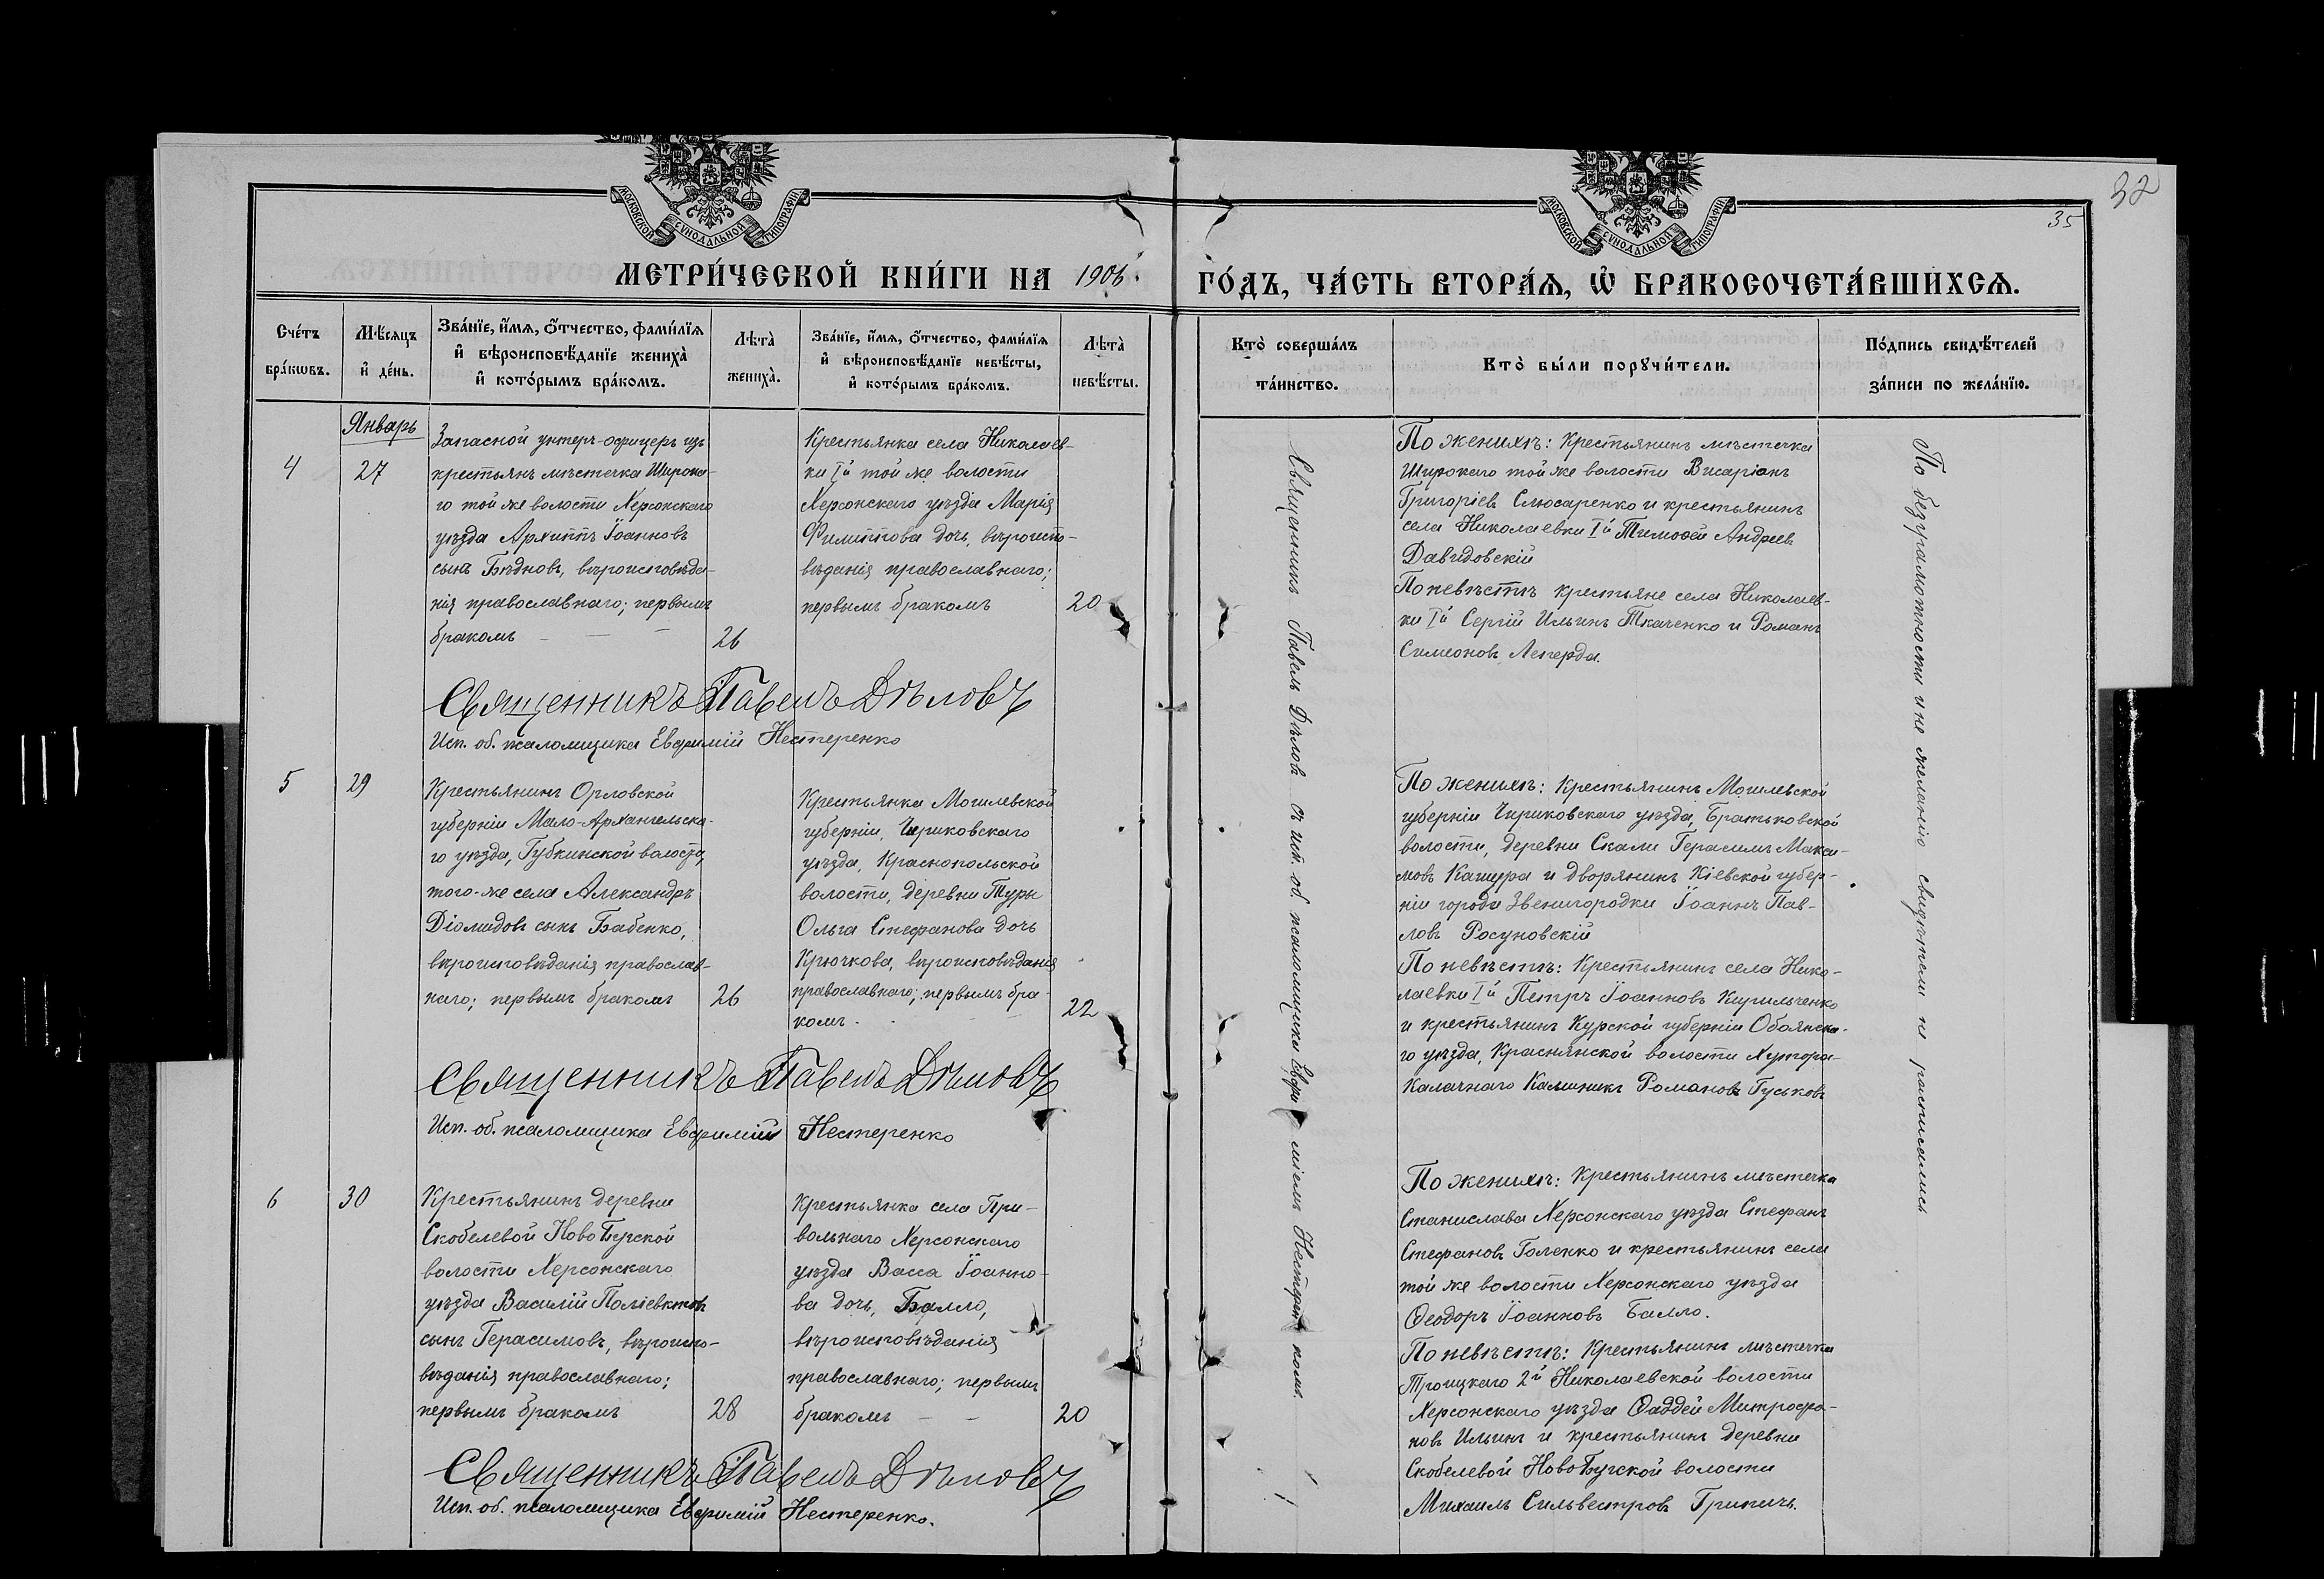 32
35
МОСКОВСКОЙ СѴНОДАЛЬНОЙ ТИПОГРАФІИ
МОСКОВСКОЙ СѴНОДАЛЬНОЙ ТИПОГРАФІИ
МЕТРИ́ЧЕСКОЙ КНИ́ГИ НА 1906.
ГО́ДЪ, ЧА́СТЬ ВТОРА́Ѧ, Ѽ БРАКОСОЧЕТА́ВШИХСѦ.
Сче́тъ
бра́кѡвъ.
Мѣ́сяцъ
и҆ де́нь.
Зва́нїе, и҆́мѧ, ѻ҆́тчество, фами́лїѧ
и҆ вѣроисповѣ́данїе жениха̀
и҆ кото́рымъ бра́комъ.
Лѣта̀
жениха̀.
Зва́нїе, и҆́мѧ, ѻ҆́тчество, фами́лїѧ
и҆ вѣроисповѣ́данїе невѣ́сты,
и҆ кото́рымъ бра́комъ.
Лѣта̀
невѣ́сты.
Кто̀ соверша́лъ
та́инство.
Кто̀ бы́ли порꙋчи́тели.
По́дпись свидѣ́телей
за́писи по жела́нїю.
Январь
4
27
Запасной унтеръ-офицеръ изъ
крестьянъ мѣстечка Широка-
го той же волости Херсонскаго
уѣзда Архиппъ Іоанновъ
сынъ Бѣдновъ, вѣроисповѣда-
нія православнаго; первымъ
бракомъ — — —
26
Крестьянка села Николаев-
ки Iй той же волости
Херсонскаго уѣзда Марія
Филиппова дочь, вѣроиспо-
вѣданія православнаго;
первымъ бракомъ
20
Священникъ Павелъ Дѣловъ
Исп. об. псаломщика Евфимій Нестеренко
По женихѣ: Крестьянинъ мѣстечка
Широкаго той же волости Висаріонъ
Григоріевъ Слюсаренко и крестьянинъ
села Николаевки Iй Тимоѳей Андреевъ
Давидовскій
По невѣстѣ крестьяне села Николаев-
ки Iй Сергій Ильинъ Ткаченко и Романъ
Симеоновъ Леперда.
5
29
Крестьянинъ Орловской
губерніи Мало-Архангельска-
го уѣзда, Губкинской волости,
того-же села Александръ
Діомидовъ сынъ Бабенко,
вѣроисповѣданія православ-
наго; первымъ бракомъ
26
Крестьянка Могилевской
губерніи, Чериковскаго
уѣзда, Краснопольской
волости, деревни Туры
Ольга Стефанова дочь
Крючкова, вѣроисповѣданія
православнаго; первымъ бра-
комъ.
22
Священникъ Павелъ Дѣловъ
Исп. об. псаломщика Евфимій Нестеренко
По женихѣ: Крестьянинъ Могилевской
губерніи Чириковскаго уѣзда, Братьковской
волости, деревни Скали Герасимъ Макси-
мовъ Кашура и дворянинъ Кіевской губер-
ніи города Звенигородки Іоаннъ Пав-
ловъ Росуновскій
По невѣстѣ: Крестьянинъ села Нико-
лаевки Iй Петръ Іоанновъ Кирильченко
и крестьянинъ Курской губерніи Обоянска-
го уѣзда, Краснянской волости Хутора-
Калачнаго Калиникъ Романовъ Гуськовъ
6
30
Крестьянинъ деревни
Скобелевой НовоБугской
волости Херсонскаго
уѣзда Василій Поліевктовъ
сынъ Герасимовъ, вѣроиспо-
вѣданія православнаго;
первымъ бракомъ
28
Крестьянка села При-
вольнаго Херсонскаго
уѣзда Васса Іоанно-
ва дочь, Балло,
вѣроисповѣданія
православнаго; первымъ
бракомъ — —
20
Священникъ Павелъ Дѣловъ
Исп. об. псаломщика Евфимій Нестеренко.
По женихѣ: Крестьянинъ мѣстечка
Станислава Херсонскаго уѣзда Стефанъ
Стефановъ Голенко и крестьянинъ села
той же волости Херсонскаго уѣзда
Ѳеодоръ Іоанновъ Балло.
По невѣстѣ: Крестьянинъ мѣстечка
Троицкаго 2й Николаевской волости
Херсонскаго уѣзда Ѳаддей Митрофа-
новъ Ильинъ и крестьянинъ деревни
Скобелевой НовоБугской волости
Михаилъ Сильвестровъ Грипичъ.
Священникъ Павелъ Дѣловъ съ исп. об. псаломщика Евфиміемъ Нестеренкомъ.
По безграмотности и не желанію свидѣтели не расписались